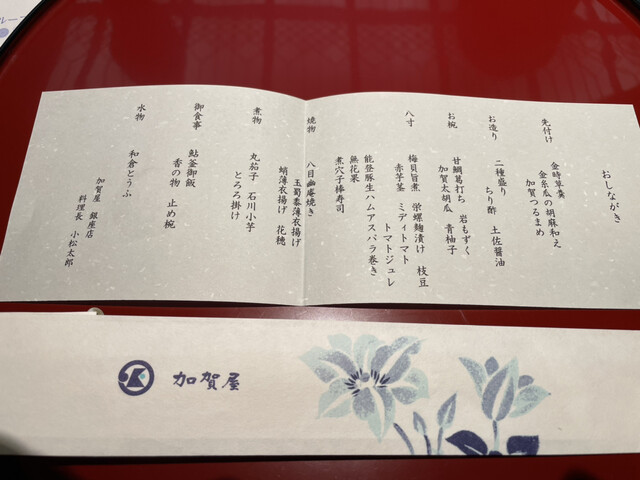 おしながき
先付け
金時草羹
金糸瓜の胡麻和え
加賀つるまめ
お造り
二種盛り
ちり酢 土佐醤油
お椀
甘鯛葛打ち 岩もずく
加賀太胡瓜 青柚子
八寸
梅貝旨煮 栄螺麹漬け 枝豆
赤芋茎 ミディトマト
トマトジュレ
能登豚生ハムアスパラ巻き
無花果
煮穴子棒寿司
焼物
八目幽庵焼き
玉蜀黍薄衣揚げ
蛸薄衣揚げ 花穂
煮物
丸茄子 石川小芋
とろろ掛け
御食事
鮎釜御飯
香の物 止め椀
水物
和倉とうふ
加賀屋 銀座店
料理長 小松太郎
加賀屋